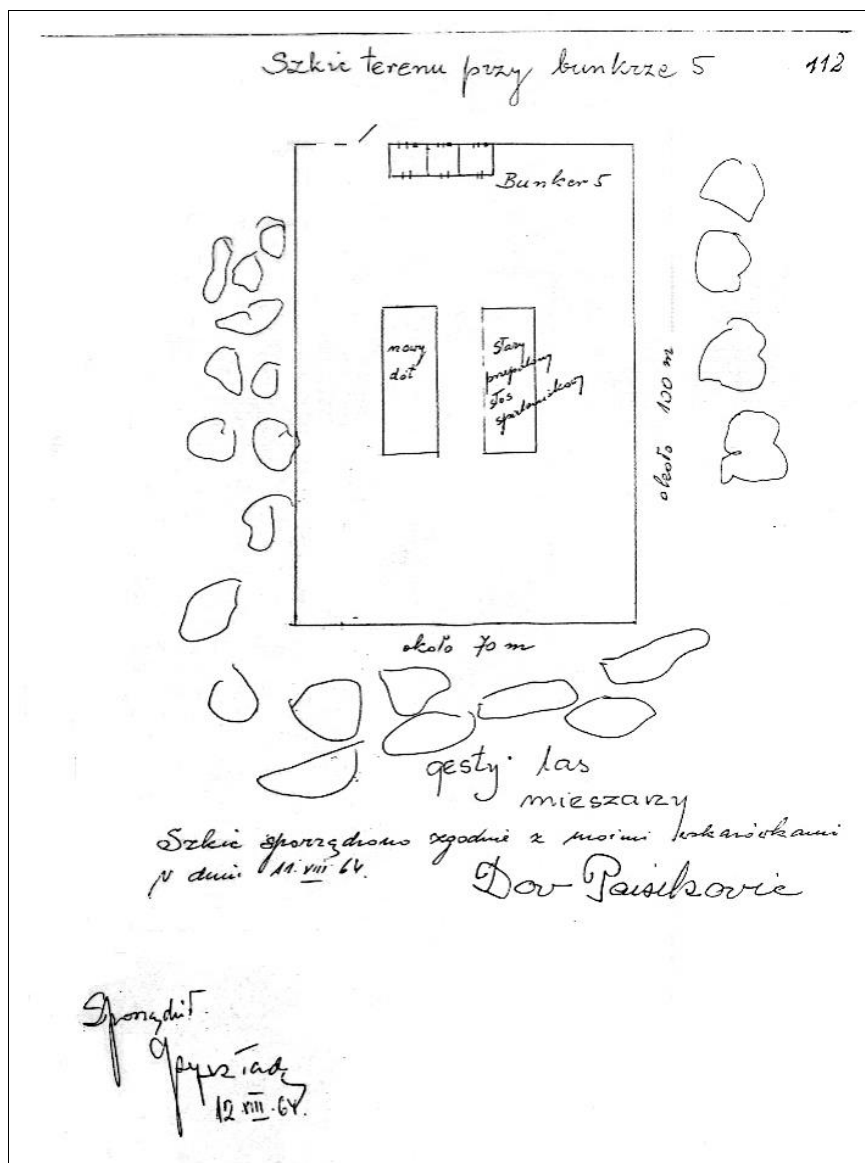 Szkic terenu przy bunkrze 5
112
Bunker 5
nowy
dół
stary
stos
około 100 m
około 70 m
gęsty las
mieszany
Szkic sporządzono zgodnie z moimi wskazówkami
w dniu 11.VIII.64.
Dov Paisikovic
Sporządził
12.VIII.64.